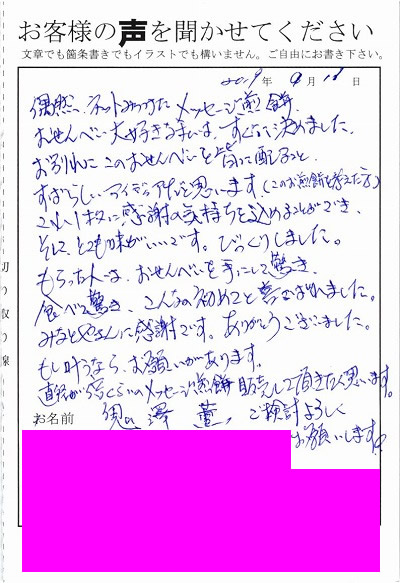 お客様の声を聞かせてください
文章でも箇条書きでもイラストでも構いません。ご自由にお書き下さい。
2019年9月18日
偶然、ネットでみつけたメッセージ煎餅、
おせんべい大好きな私は、すぐに決めました。
お別れにこのおせんべいを皆に配ること、
すばらしいアイデアだと思います(このお煎餅を考えた方)
これ1枚に感謝の気持ちを込めることができ、
そして、とても味がいいです。びっくりしました。
もらった人は、おせんべいを手にして驚き、
食べて驚き、こんなの初めてと喜ばれました。
みなとやさんに感謝です。ありがとうございました。
もし叶うなら、お願いがあります。
直径が くらいのメッセージ煎餅販売して頂きたく思います。
ご検討よろしく
お願いします。
お名前 澤 薫
切り取り線